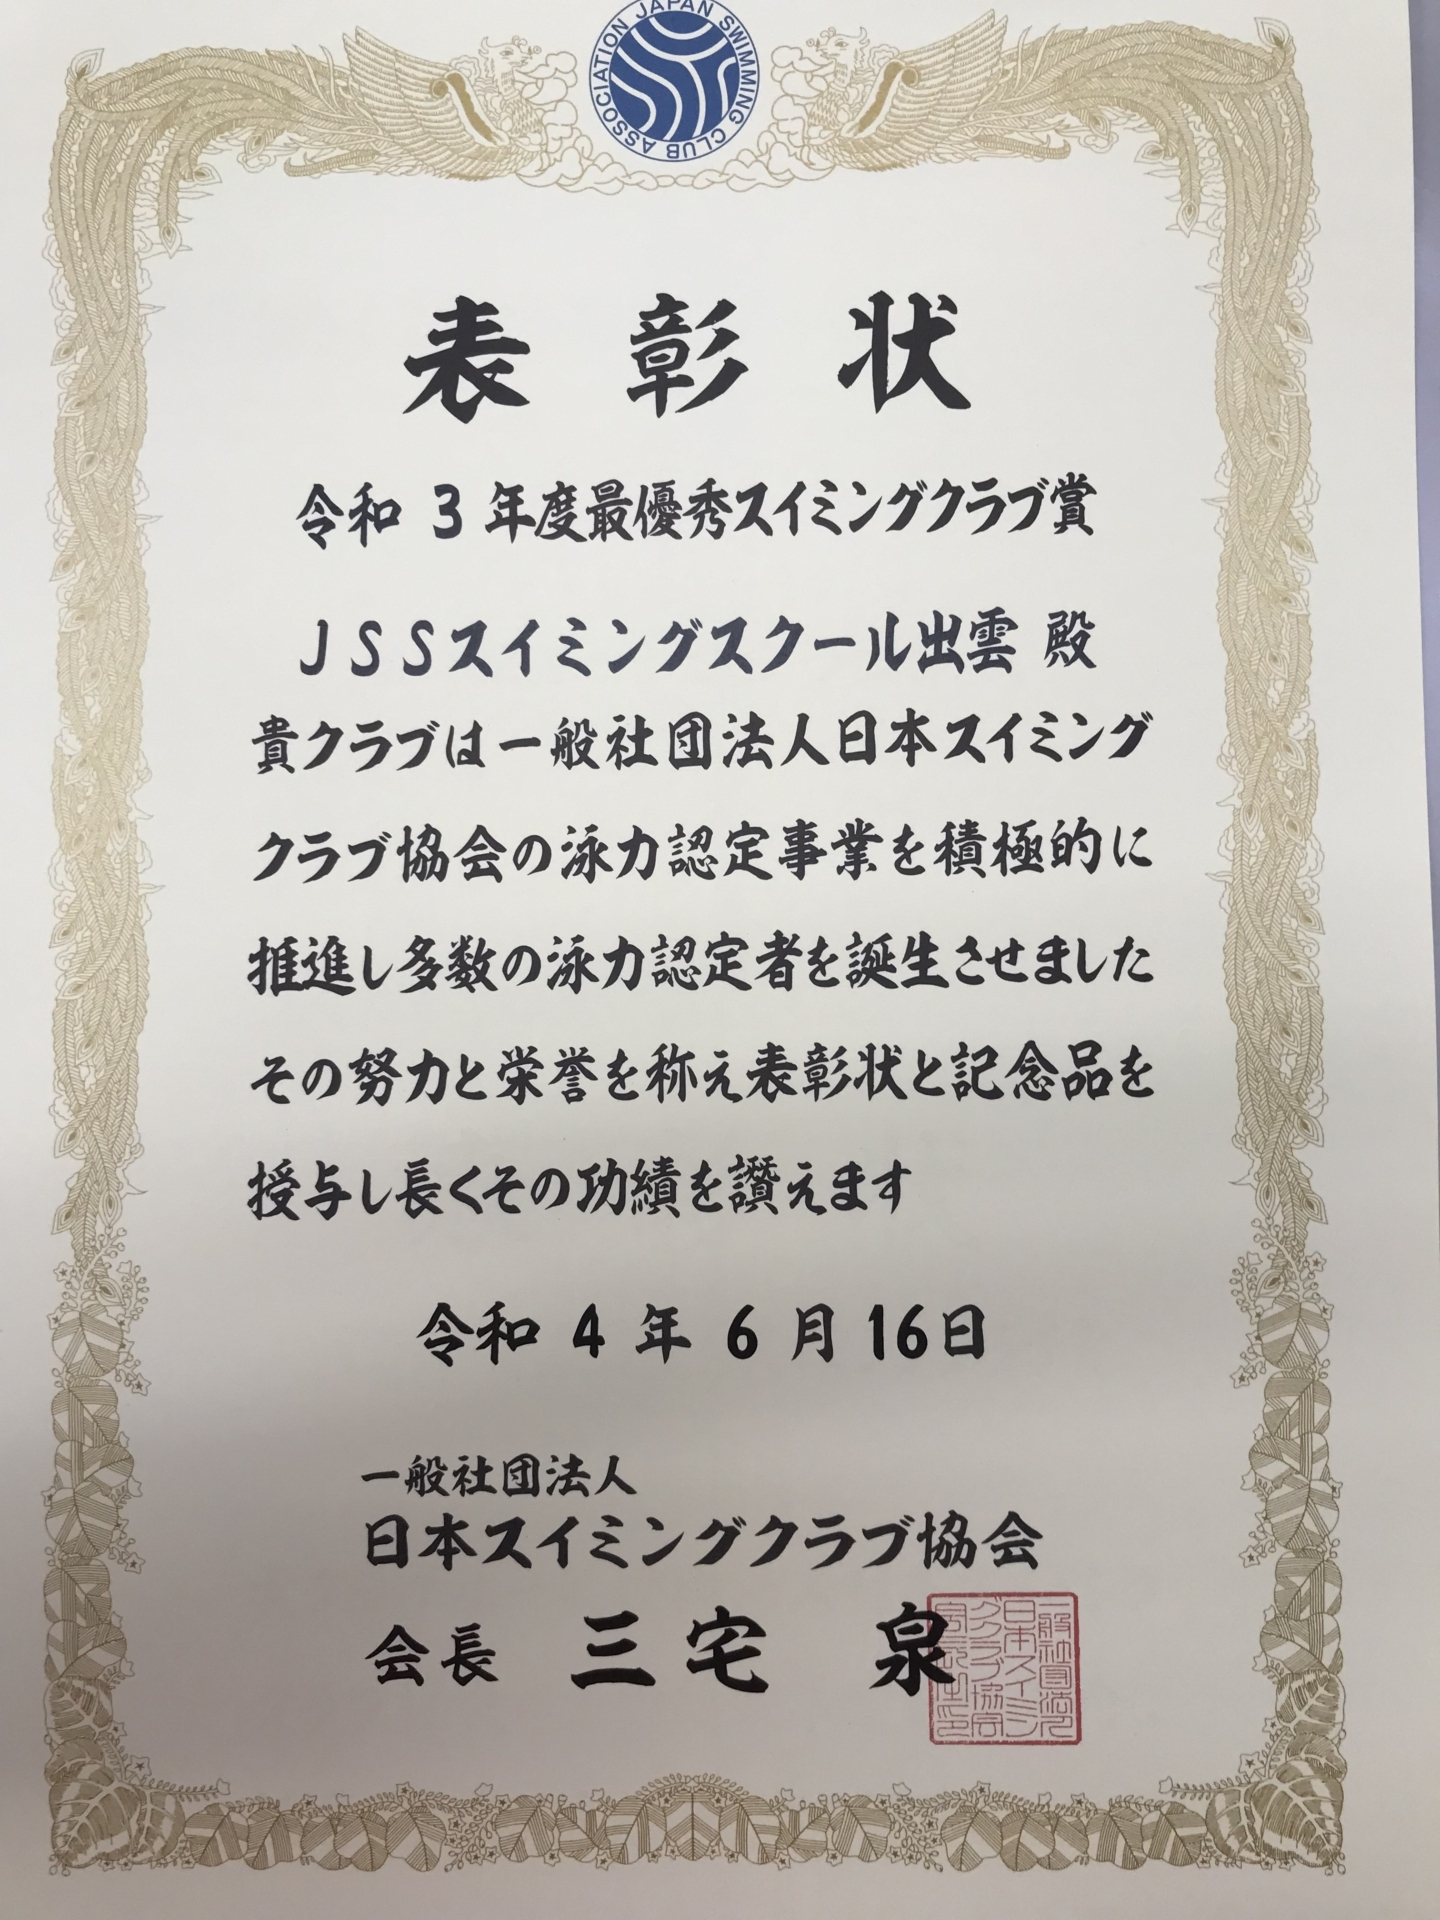 JAPAN SWIMMING CLUB ASSOCIATION
表彰状
令和 3 年度最優秀スイミングクラブ賞
JSSスイミングスクール出雲 殿
貴クラブは一般社団法人日本スイミング
クラブ協会の泳力認定事業を積極的に
推進し多数の泳力認定者を誕生させました
その努力と栄誉を称え表彰状と記念品を
授与し長くその功績を讃えます
令和 4 年 6 月 16日
一般社団法人
日本スイミングクラブ協会
会長 三宅 泉
一般社団法人
日本スイミン
グクラブ協会